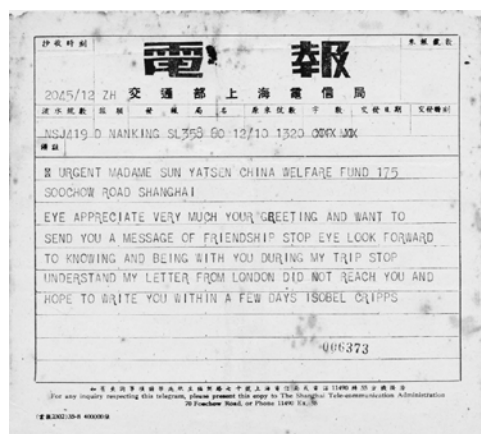 電報
2045/12 ZH 交通部上海電信局
NSJ419 D NANKING SL358 80 12/10 1320
URGENT MADAME SUN YATSEN CHINA WELFARE FUND 175
SOOCHOW ROAD SHANGHAI
EYE APPRECIATE VERY MUCH YOUR GREETING AND WANT TO
SEND YOU A MESSAGE OF FRIENDSHIP STOP EYE LOOK FORWARD
TO KNOWING AND BEING WITH YOU DURING MY TRIP STOP
UNDERSTAND MY LETTER FROM LONDON DID NOT REACH YOU AND
HOPE TO WRITE YOU WITHIN A FEW DAYS ISOBEL CRIPPS
006373
For any inquiry respecting this telegram, please present this copy to The Shanghai Tele-communication Administration
70 Foochow Road, or Phone 11490 Ex.